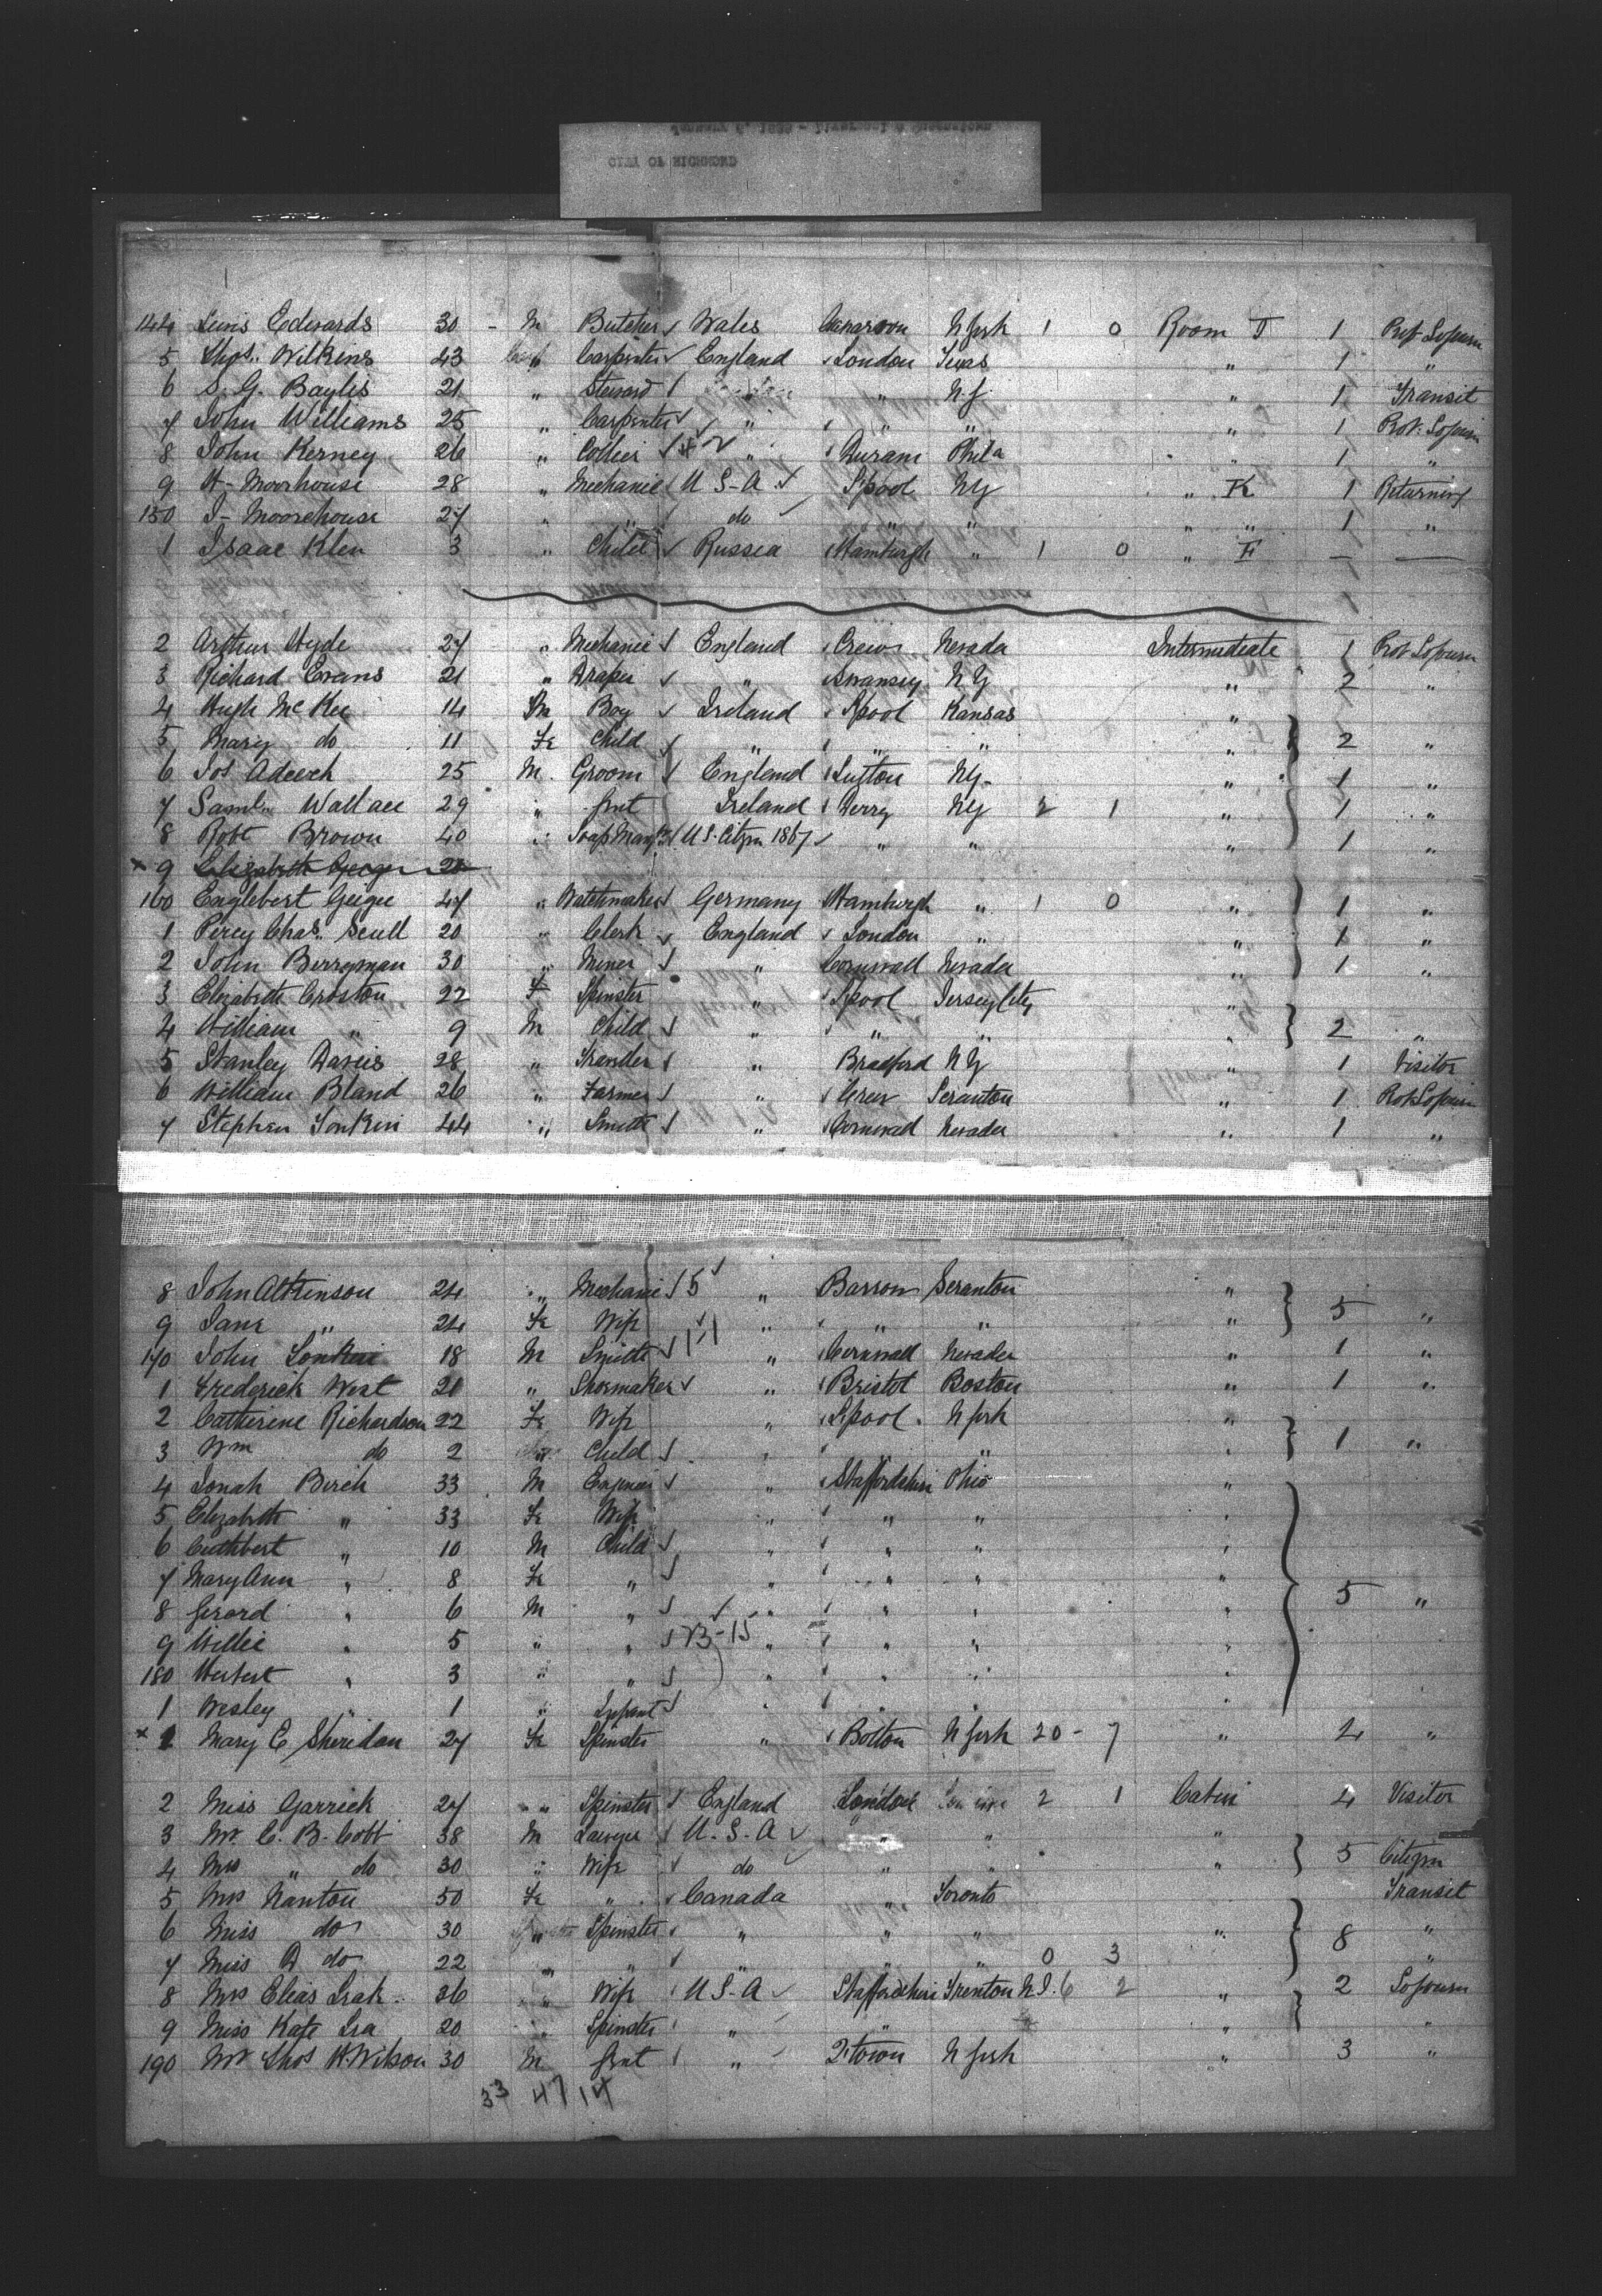 CITY OF RICHMOND
144 Lewis Edwards 30 - M Butcher Wales Carnarvon N York 1 0 Room T 1 Prot Sojourn
5 Thos. Wilkins 43 " Carpenter England London Texas " 1 "
6 S. G. Baylis 21 " Steward " N. J. " 1 Transit
7 John Williams 25 " Carpenter " " " " 1 Prot. Sojourn
8 John Kerney 26 " Collier " Duram Phila " 1 "
9 H- Moorhouse 28 " Mechanic U S-A Lpool NY " K 1 Returning
150 I- Moorehouse 27 " " do " " " " 1 "
1 Isaac Klen 3 " Child Russia Hamburgh " 1 0 " F — —
2 Arthur Hyde 27 " Mechanic England Crewe Nevada Intermediate 1 Prot Sojourn
3 Richard Evans 21 " Draper " Swansey N Y " 2 "
4 Hugh McKee 14 M Boy Ireland Lpool Kansas "
5 Mary do 11 Fe Child " " " " 2 "
6 Jos 25 M. Groom England NY- " 1 "
7 Saml. Wallace 29 " Gent Ireland Derry NY 2 1 " 1 "
8 Robt Brown 40 " U.S. Citzn 1867 " " " 1 "
x 9 Elizabeth
160 Englebert Geiger 47 " Watchmaker Germany Hamburgh " 1 0 " 1 "
1 Percy Chas. Scull 20 " Clerk England London " " 1 "
2 John Berryman 30 " Miner " Cornwall Nevada " 1 "
3 Elizabeth Croston 22 F Spinster " Lpool Jersey City "
4 William " 9 M Child " " " " 2 "
5 Stanley Davies 28 " Traveller " Bradford N Y " 1 Visitor
6 William Bland 26 " Farmer " Crew Scranton " 1 Prot Sojourn
7 Stephen Tonkin 44 " Smith " Cornwall Nevada " 1 "
8 John Atkinson 24 " Mechanic 5 " Barrow Scranton "
9 Jane " 24 Fe Wife " " " " 5 "
170 John Tonkin 18 M Smith " Cornwall Nevada " 1 "
1 Frederick West 21 " Shoemaker " Bristol Boston " 1 "
2 Catherine Richardson 22 Fe Wife " Lpool N York "
3 Wm do 2 " Child " " " " 1 "
4 Jonah Birch 33 M Engineer " Staffordshire Ohio "
5 Elizabeth " 33 Fe Wife " " " "
6 Cuthbert " 10 M Child " " " "
7 Mary Ann " 8 Fe " " " " "
8 Gerard " 6 M " " " " " 5 "
9 Willie " 5 " " 23-15 " " " "
180 Herbert " 3 " " " " " "
1 Wesley " 1 " Infant " " " "
x 1 Mary E Sheridan 27 Fe Spinster " Bolton N York 20 - 7 " 2 "
2 Miss Garrick 27 " Spinster England London 2 1 Cabin 4 Visitor
3 Mr. C. B. Cobb 38 M Lawyer U. S. A " " "
4 Mrs " do 30 " Wife do " " " 5 Citizn
5 Mrs Nanton 50 Fe " Canada " Toronto Transit
6 Miss do 30 " Spinster " " " " 8 "
7 Miss D do 22 " " " " 0 3 "
8 Mrs Elias 36 " Wife U S-A Staffordshire Trenton N.J. 6 2 " 2 Sojourn
9 Miss Kate 20 " Spinster " " " "
190 Mr Thos H. Wilson 30 M Gent " Qtown N York " 3 "
33 47 14